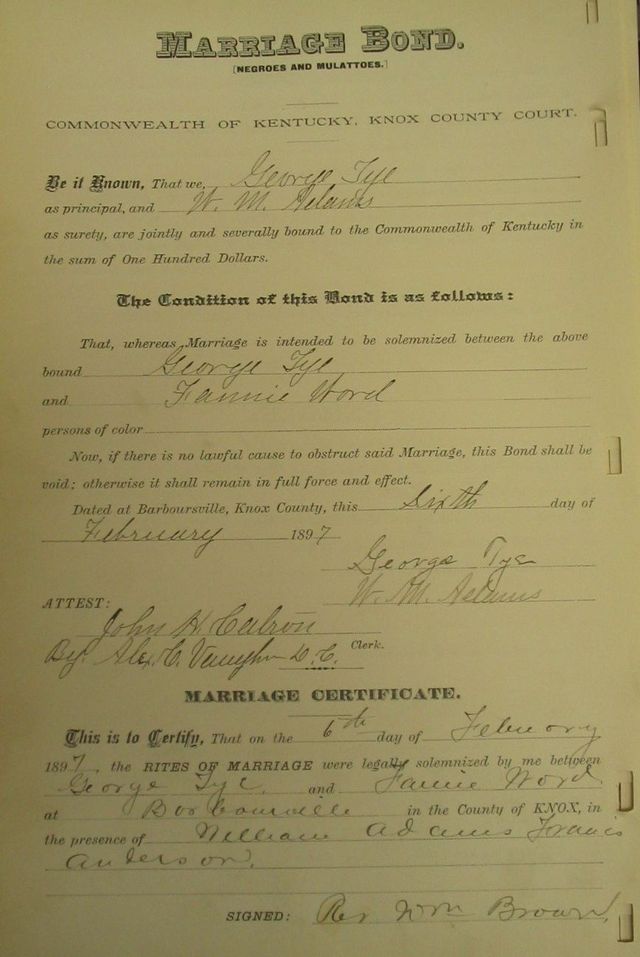 MARRIAGE BOND.
[NEGROES AND MULATTOES.]
COMMONWEALTH OF KENTUCKY, KNOX COUNTY COURT.
Be it Known, That we, George Tye
as principal, and W. M. Adams
as surety, are jointly and severally bound to the Commonwealth of Kentucky in
the sum of One Hundred Dollars.
The Condition of this Bond is as follows:
That, whereas Marriage is intended to be solemnized between the above
bound George Tye
and Fannie Word
persons of color
Now, if there is no lawful cause to obstruct said Marriage, this Bond shall be
void; otherwise it shall remain in full force and effect.
Dated at Barboursville, Knox County, this Sixth day of
February 1897
George Tye
W. M. Adams
ATTEST:
John H. Catron
By. Alex. C. Vaughn D. C. Clerk.
MARRIAGE CERTIFICATE.
This is to Certify, That on the 6th day of February
1897, the RITES OF MARRIAGE were legally solemnized by me between
George Tye and Fannie Word
at in the County of KNOX, in
the presence of William Adams Francis
Anderson.
SIGNED: Rev Wm Brown,